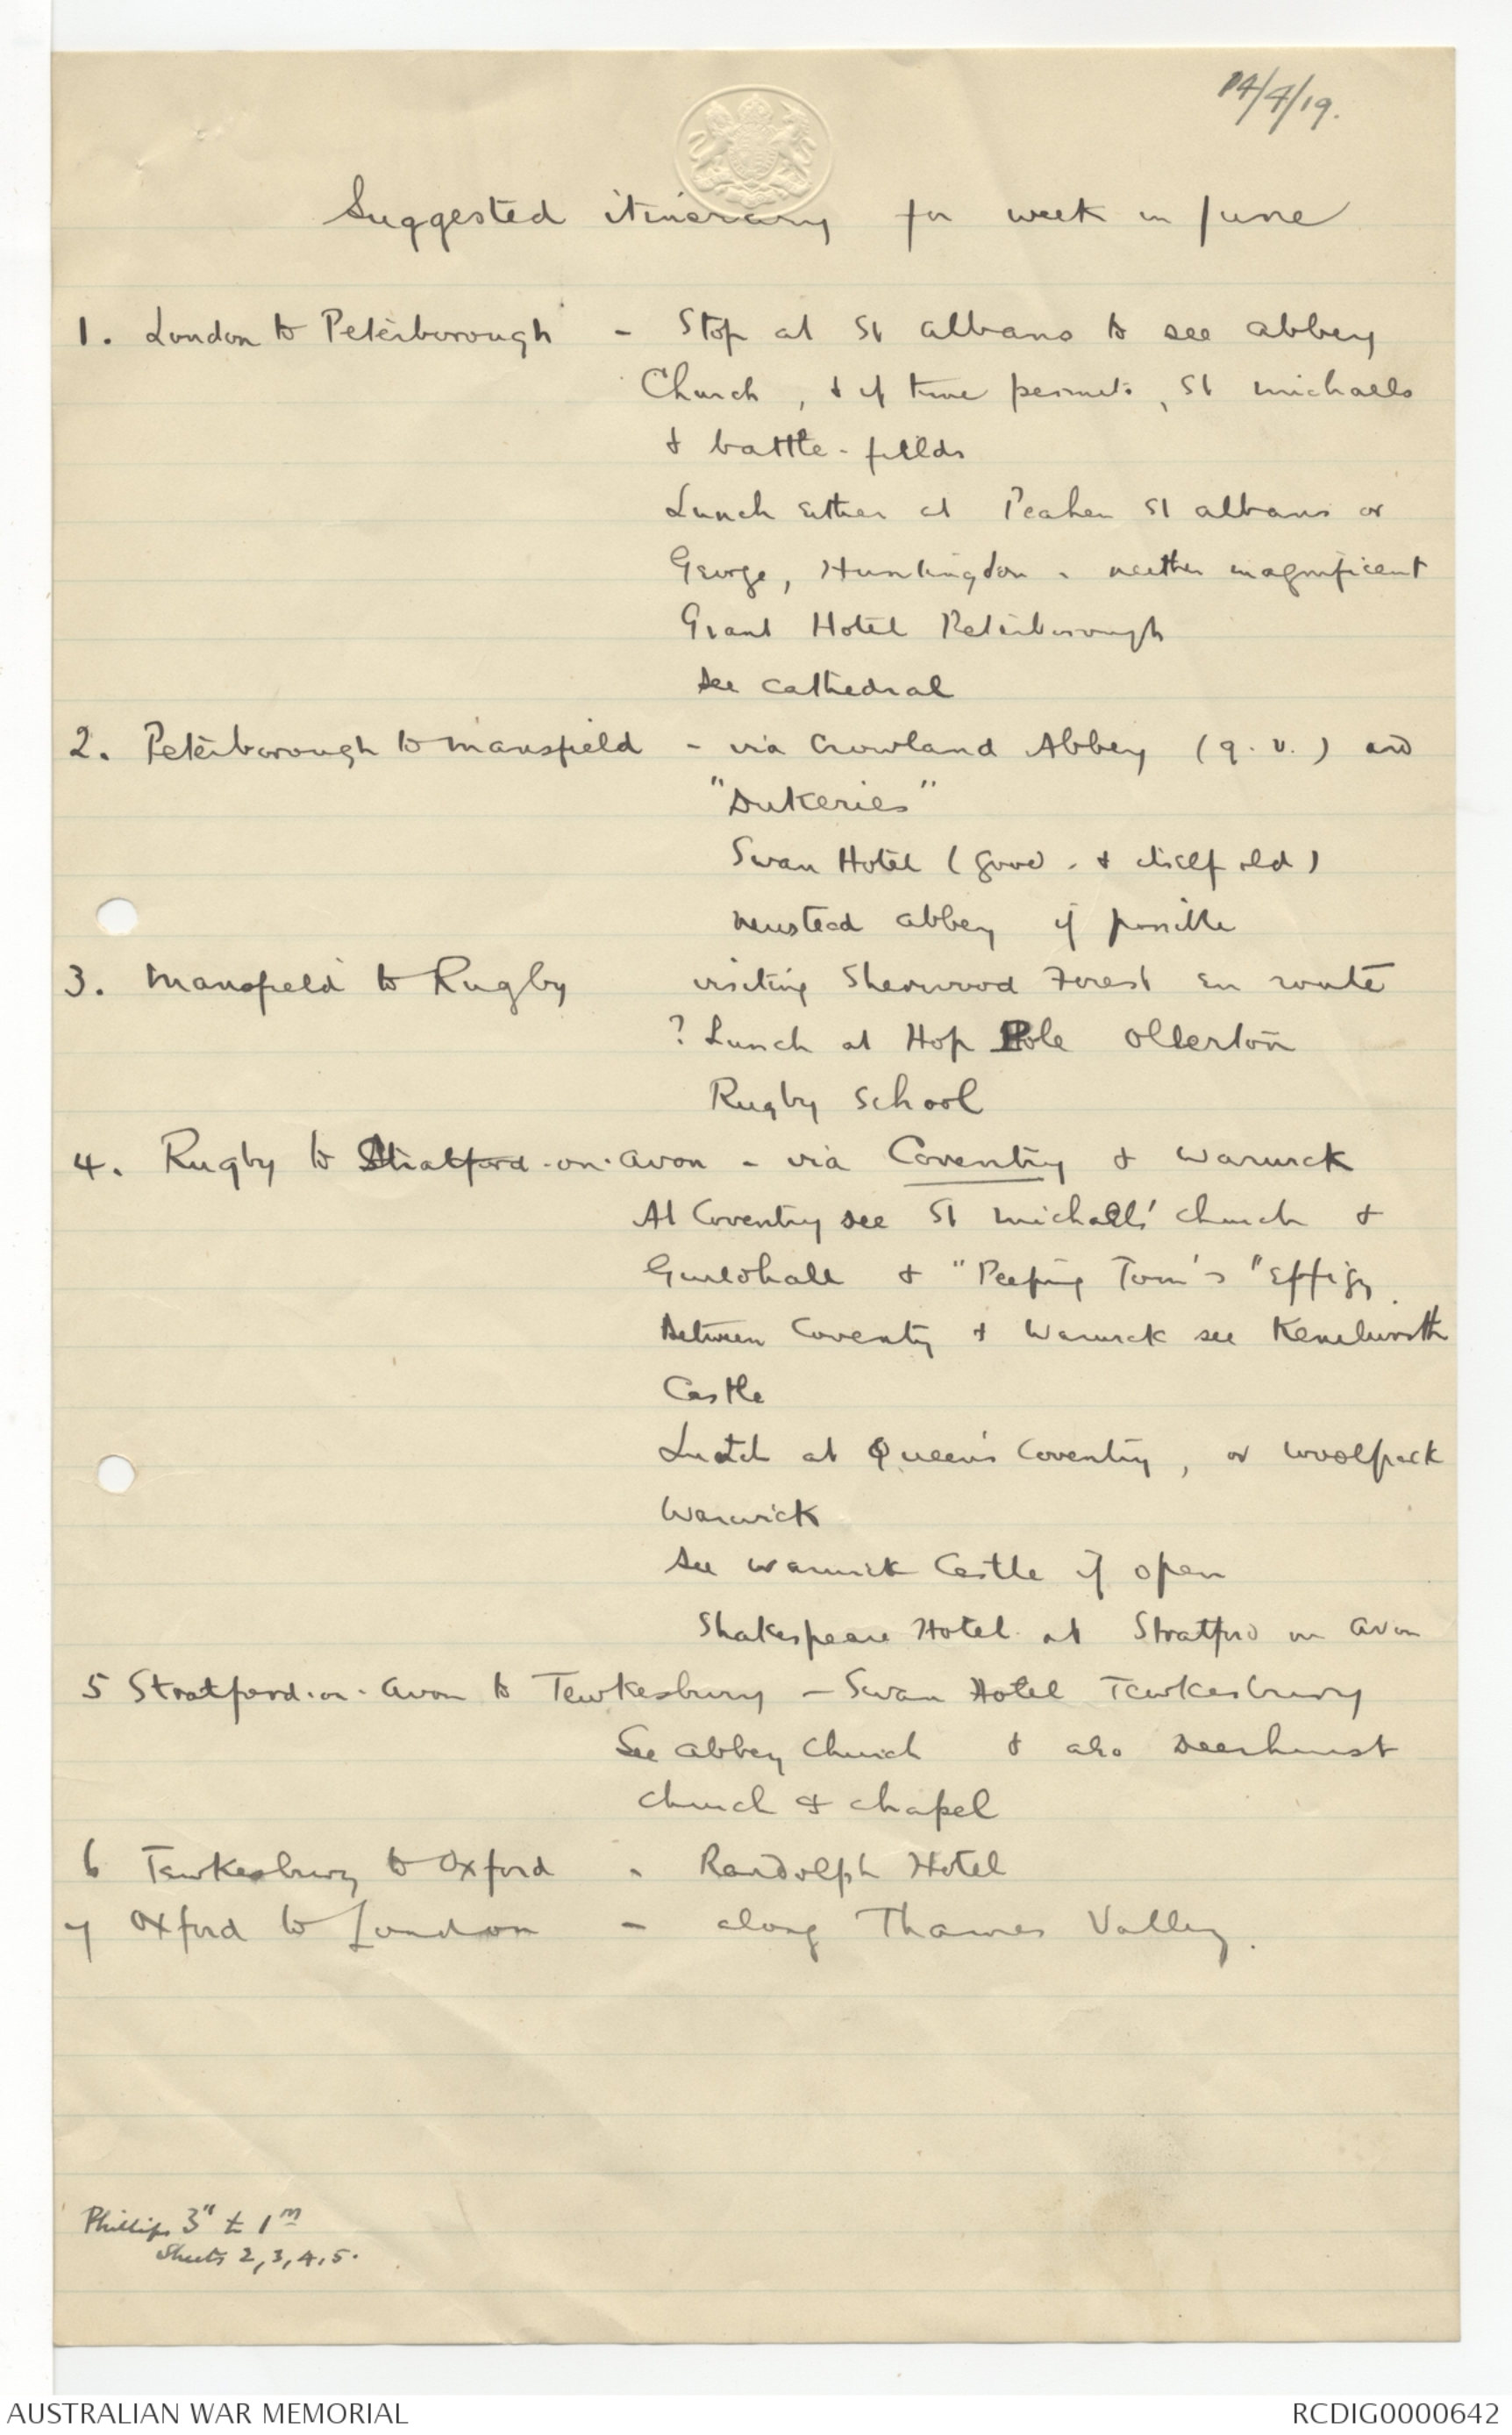 14/4/19.
Suggested itinerary for week in June
1. London to Peterborough - Stop at St Albans to see abbey
Church, & if time permits, St Michaels
& battle-fields
Lunch either at Peahen St Albans or
George, Huntingdon - neither magnificent
Grand Hotel Peterborough
See cathedral
2. Peterborough to Mansfield - via Crowland Abbey (q.v.) and
"Dukeries"
Swan Hotel (good - & itself old)
Newstead abbey if possible
3. Mansfield to Rugby visiting Sherwood Forest en route
? Lunch at Hop Pole Ollerton
Rugby School
4. Rugby to Stratford-on-Avon - via Coventry & Warwick
At Coventry see St Michaels' church &
Guildhall & "Peeping Tom's" Effigy.
Between Coventry & Warwick see Kenilworth
Castle
Lunch at Queen's Coventry, or Woolpack
Warwick
See Warwick Castle if open
Shakespeare Hotel at Stratford on Avon
5 Stratford-on-Avon to Tewkesbury - Swan Hotel Tewkesbury
See abbey church & also Deerhurst
church & chapel
6 Tewkesbury to Oxford - Randolph Hotel
7 Oxford to London - along Thames Valley.
Phillips 3" to 1m
Sheets 2,3,4,5.
AUSTRALIAN WAR MEMORIAL
RCDIG0000642